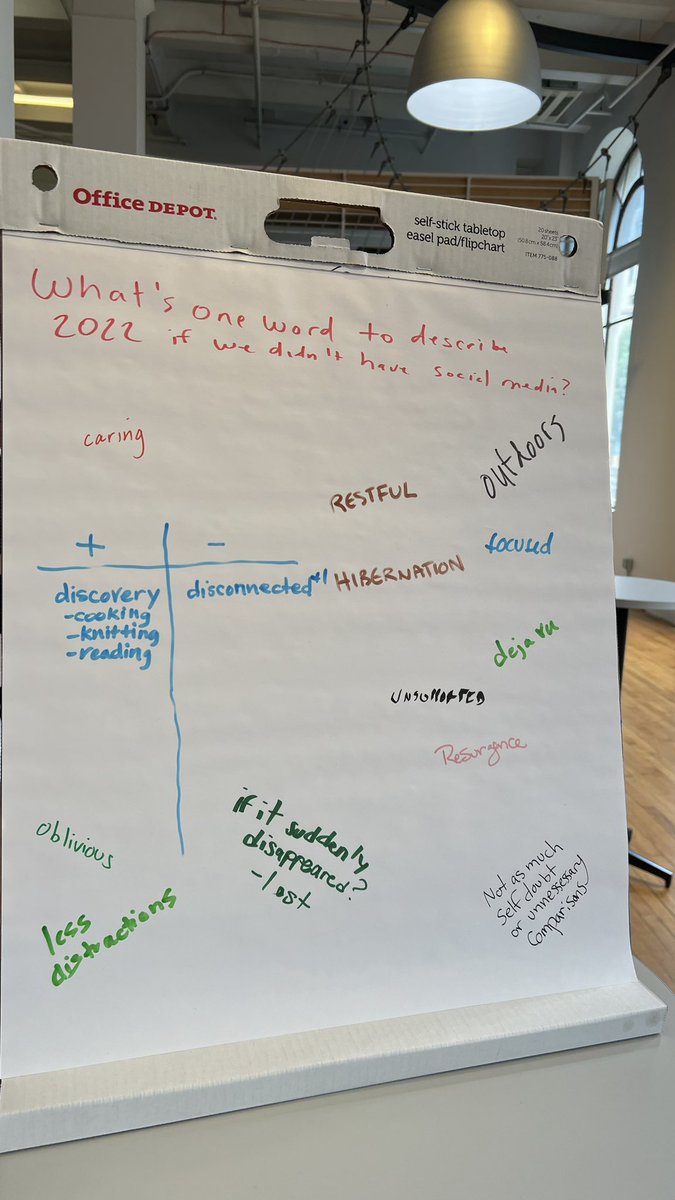 Office DEPOT.
self-stick tabletop
easel pad/flipchart
20 sheets
20"x23"
(50.8 cm x 58.4 cm)
ITEM 775-088
What's one word to describe
2022 if we didn't have social media?
caring
outdoors
RESTFUL
+ -
focused
discovery
-cooking
-knitting
-reading
disconnected +1
HIBERNATION
deja vu
Resurgence
oblivious
if it suddenly
disappeared?
-lost
less
distractions
Not as much
Self doubt
or unnessessary
Comparisons